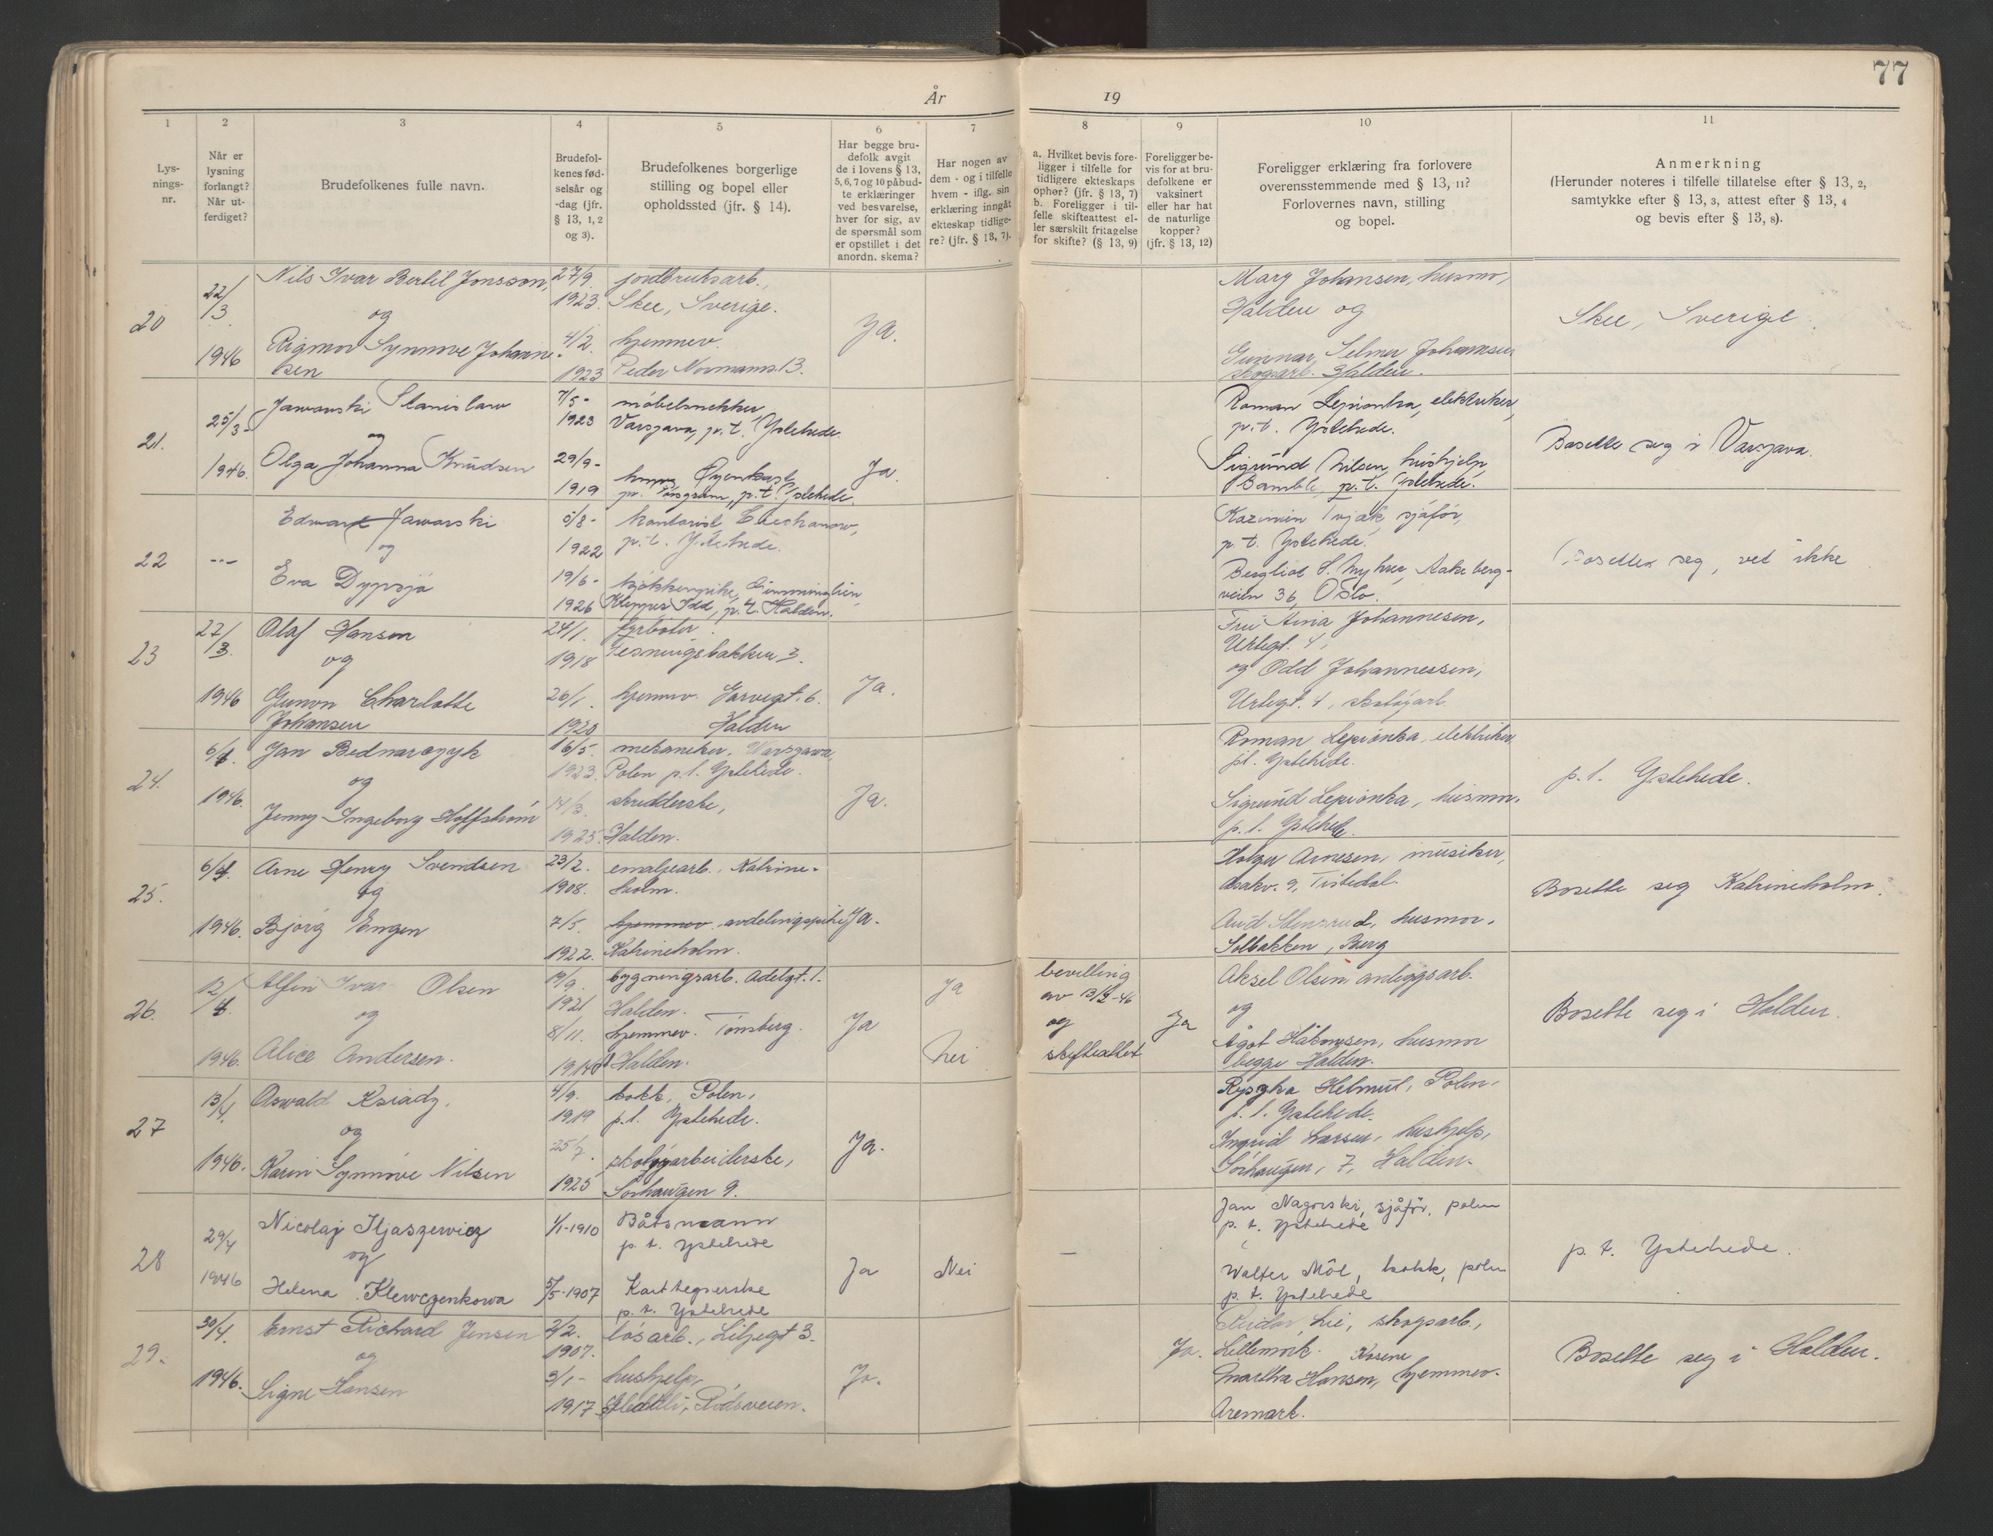 77
År
19
1
2
3
4
5
6
7
8
9
10
11
Lys-
nings-
nr.
Når er
lysning
forlangt?
Når ut-
ferdiget?
Brudefolkenes fulle navn.
Brudefol-
kenes fød-
selsår og
-dag (jfr.
§ 13, 1, 2
og 3).
Brudefolkenes borgerlige
stilling og bopel eller
opholdssted (jfr. § 14).
Har begge bru-
defolk avgit
de i lovens § 13,
5, 6, 7 og 10 påbud-
te erklæringer
ved besvarelse,
hver for sig, av
de spørsmål som
er opstillet i det
anordn. skema?
Har nogen av
dem - og i tilfelle
hvem - iflg. sin
erklæring inngått
ekteskap tidlige-
re? (jfr. § 13, 7).
a. Hvilket bevis fore-
ligger i tilfelle for
tidligere ekteskaps
ophør? (jfr. § 13, 7)
b. Foreligger i til-
felle skifteattest el-
ler særskilt fritagelse
for skifte? (§ 13, 9)
Foreligger be-
vis for at bru-
defolkene er
vaksinert
eller har hat
de naturlige
kopper?
(jfr. § 13, 12)
Foreligger erklæring fra forlovere
overensstemmende med § 13, 11?
Forlovernes navn, stilling
og bopel.
Anmerkning
(Herunder noteres i tilfelle tillatelse efter § 13, 2,
samtykke efter § 13, 3, attest efter § 13, 4
og bevis efter § 13, 8).
20
22/3
1946
Nils Ivar Bertil Jonsson,
og
Rigmor Synnøve Johanne-
sen
27/9.
1923.
4/2.
1923
jordbruksarb.,
Skee, Sverige.
hjemmev.
Peder Normanns 13.
Ja.
Mary Johansen, husmo,
Halden og
Gunnar, Selmer Johansen
skogsarb. Halden.
Skee, Sverige.
21.
25/3-
1946.
Jawarski Stanislaw
og
Olga Johanna Knudsen
7/5-
1923
29/9-
1919
møbelsnekker,
Varsjava, p.t. Ystehede.
p.t. Ystehede.
Ja.
Roman Lepionka, elektriker,
p.t. Ystehede.
Sigrund Nilsen, hushjelp,
Bamble, p.t. Ystehede.
Bosette seg i Varsjava.
22
---
Edward Jawarski
og
Eva Dypsjø
5/8-
1922
19/6-
1926
kontorist Ciechanow,
p.t. Ystehede.
Idd, p.t. Halden.
p.t. Ystehede.
veien 36, Oslo.
Bosetter seg, vet ikke
23
27/3.
1946
Olaf Hansen
og
Gunvor Charlotte
Johansen
24/1.
1918
26/1.
1920
fyrbøter.
hjemmev. Garvegt. 6.
Halden
Ja.
Fru Aina Johannesen,
Urtegt. 4,
og Odd Johannessen,
Urtegt. 4, skotøyarb.
24.
6/4.
1946.
Jan Bednarczyk
og
Jenny Ingeborg Hoffstrøm
16/5.
1923.
14/3.
1925
mekaniker, Warsgawa,
Polen p.t. Ystehede.
skredderske,
Halden.
Ja.
Roman Lepionka, elektriker
p.t. Ystehede.
Sigrund Lepionka, husmor.
p.t. Ystehede.
p.t. Ystehede.
25.
6/4.
1946.
Arne Henry Svendsen
og
Bjørg Engen
23/2.
1908.
7/5.
1922.
emaljearb., Katrine-
holm.
hjemmev. avdelingspike
Katrineholm.
Ja.
Holger Arnesen, musiker,
9, Tistedal.
husmor,
Solbakken, Berg
Bosette seg Katrineholm.
26.
12/4
1946.
Alfin Ivar Olsen
og
Alice Andersen.
19/9.
1921
8/11.
bygningsarb. Adelgt. 1.
Halden.
hjemmev. Tønsberg.
Halden.
Ja
Ja
Nei
bevilling
av 13/2-46
og
skifteattest
Ja
Aksel Olsen anleggsarb.
og
Ågot Håkonsen, husmor
begge Halden.
Bosette seg i Halden.
27
13/4
1946.
Oswald Ksiadz.
og
Karin Synnøve Nilsen
4/9.
1919
25/7.
1925
kokk, Polen,
p.t. Ystehede.
skotøyarbeiderske,
Sørhaugen 9.
Ja.
Helmut, Polen,
p.t. Ystehede.
Ingrid Larsen, hushjelp,
Sørhaugen, 7, Halden.
28
29/4
1946
Nicolaj Iljaszewicz
og
Helena Klewczenkowa
1/1-1910
5/5-1907
Båtsmann
p.t. Ystehede
Karttegnerske
p.t. Ystehede
Ja
Nei
—
Jan Nagorski, sjåfør, polen
p.t. Ystehede
Walter Möl, kokk, polen
p.t. Ystehede
p.t. Ystehede.
29.
30/4.
1946.
Ernst Richard Jensen
og
Signe Hansen
2/2.
1907.
3/1-
1917
løsarb., Liljegt 3.
hushjelp,
Rødsveien.
Ja.
Ja.
Reidar Lie, skogsarb,
Lillemork.
Kasene
Martha Hansen, hjemmev.
Aremark.
Bosette seg i Halden.